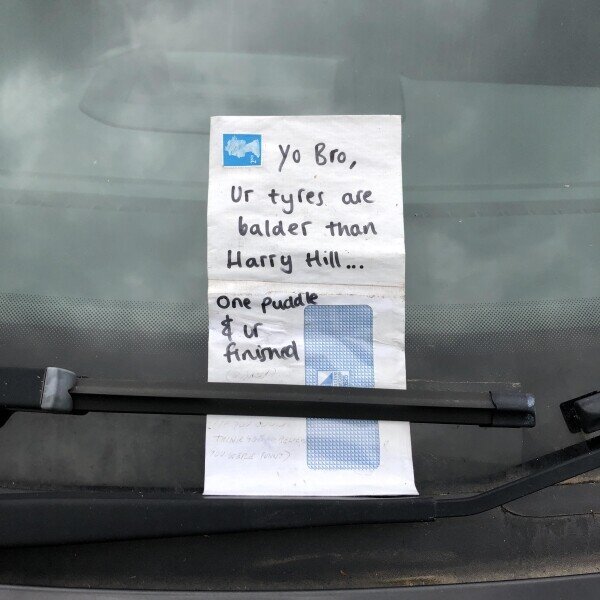 Yo Bro,
Ur tyres are
balder than
Harry Hill...
One puddle
& ur
finished